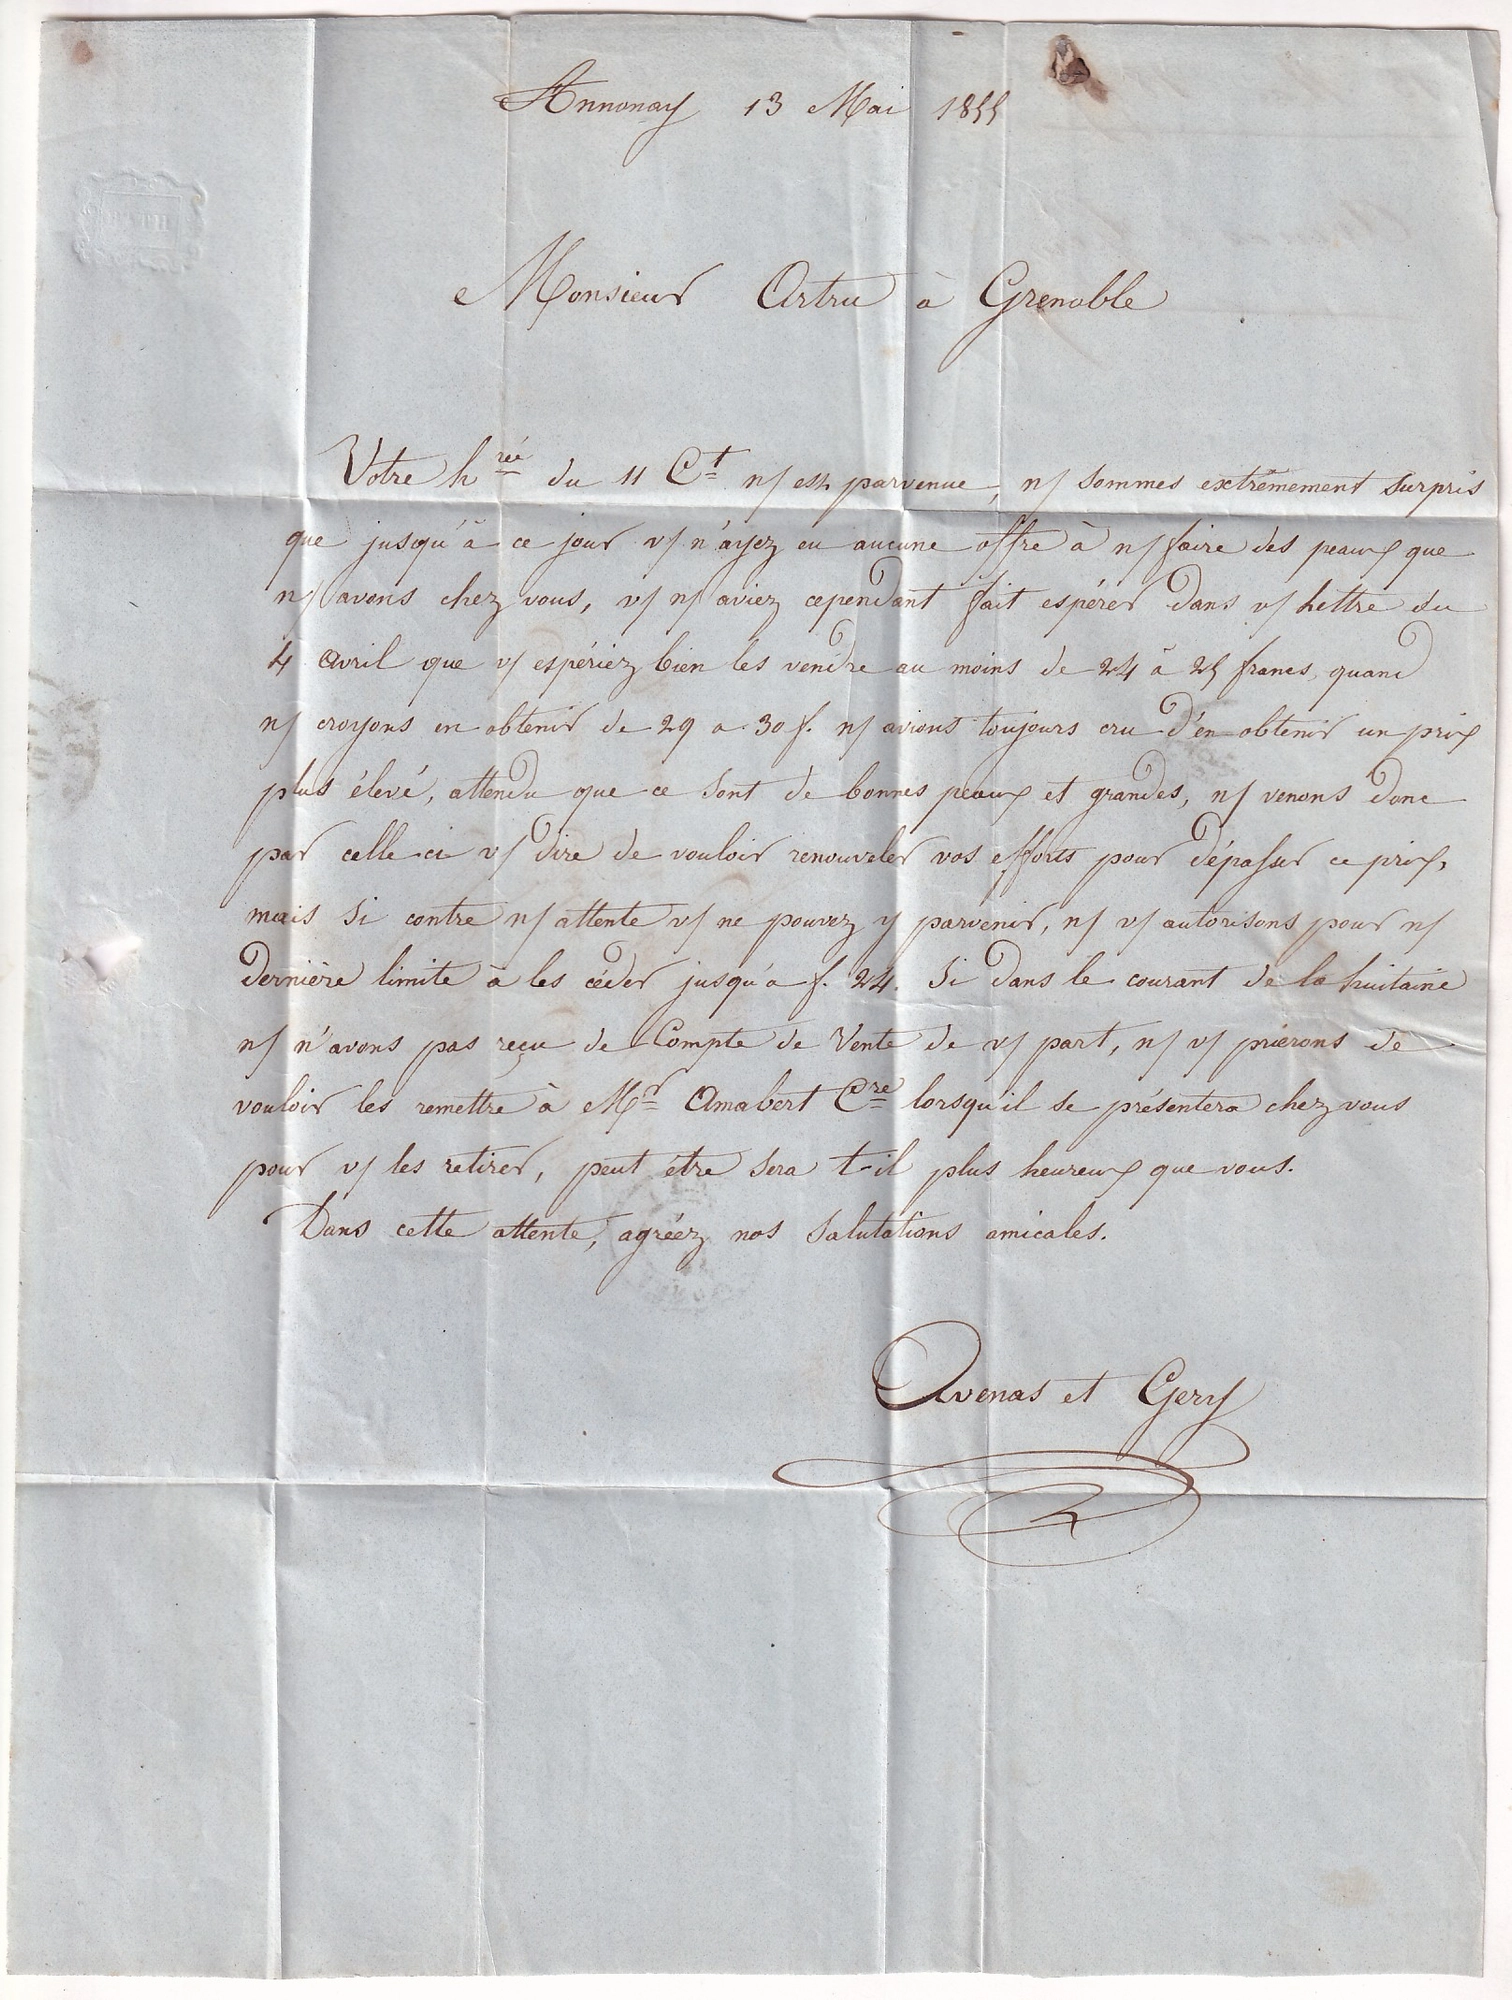 Annonay 13 Mai 1855
Monsieur Artru à Grenoble
Votre h rée du 11 Ct n/ est parvenue, n/ sommes extrêmement surpris
que jusqu'à ce jour v/ n'ayez eu aucune offre à n/ faire des peaux que
n/ avons chez vous, v/ n/ aviez cependant fait espérer dans v/ lettre du
4 avril que v/ espériez bien les vendre au moins de 24 à 25 francs, quand
n/ croyons en obtenir de 29 a 30 f. n/ avions toujours cru d'en obtenir un prix
plus élevé, attendu que ce sont de bonnes peaux et grandes, n/ venons donc
par celle ci v/ dire de vouloir renouveler vos efforts pour dépasser ce prix,
mais si contre n/ attente v/ ne pouvez y parvenir, n/ v/ autorisons pour n/
dernière limite à les céder jusqu'a f. 24. Si dans le courant de la huitaine
n/ n'avons pas reçu de Compte de Vente de v/ part, n/ v/ prierons de
vouloir les remettre à Mr Amabert Cre lorsqu'il se présentera chez vous
pour v/ les retirer, peut être sera t-il plus heureux que vous.
Dans cette attente, agréez nos salutations amicales.
Avenas et Gery